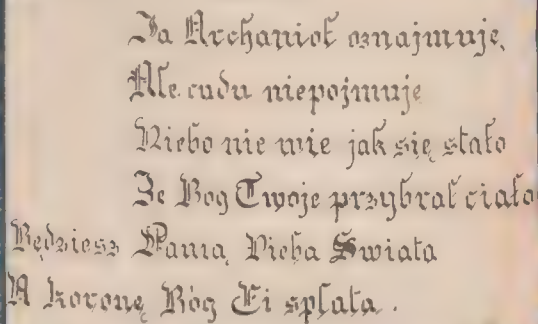 Ja Archanioł oznajmuję,
Ale cudu niepojmuję
Niebo nie wie jak się stało
Ze Bog Twoje przybrał ciało
Będziesz Panią Nieba Swiata
A koronę Bóg Ci splata.